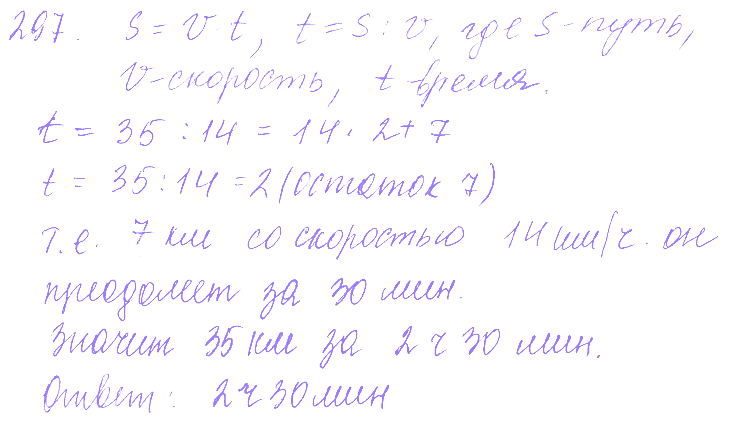 297. S = V t, t = S : v, где S - путь,
V - скорость, t время.
t = 35 : 14 = 14 · 2 + 7
t = 35 : 14 = 2 (остаток 7)
т.е. 7 км со скоростью 14 км/ч. он
преодолеет за 30 мин.
Значит 35 км за 2 ч 30 мин.
Ответ: 2 ч 30 мин